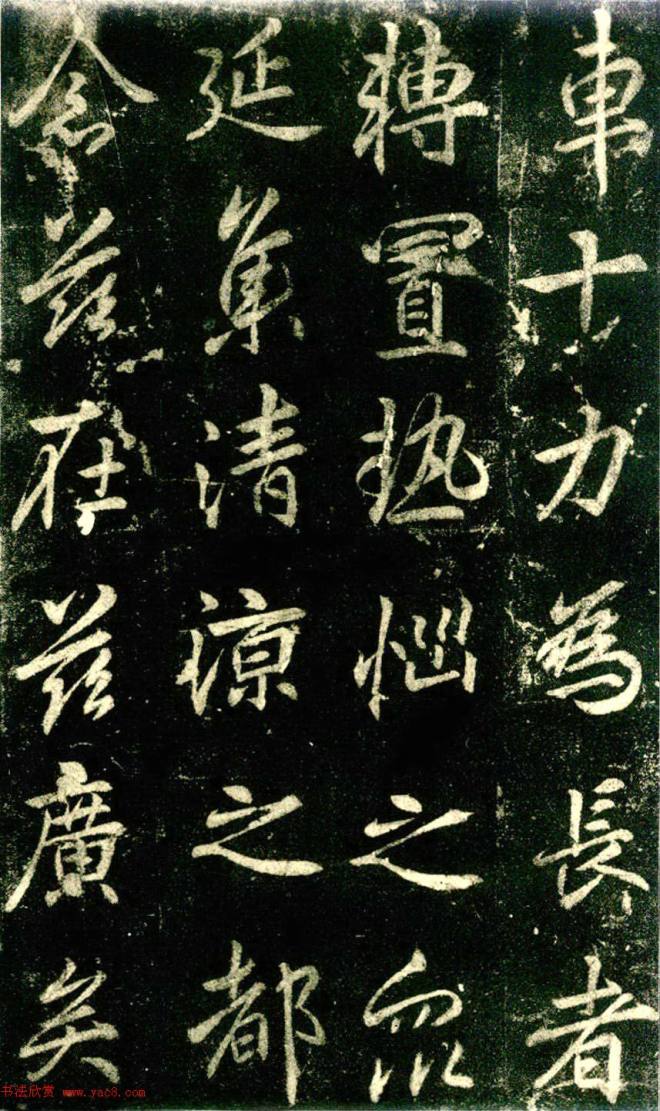 車十力為長者
轉置熱惱之衆
延集清涼之都
念茲在茲廣矣
书法欣赏 www.yac8.com